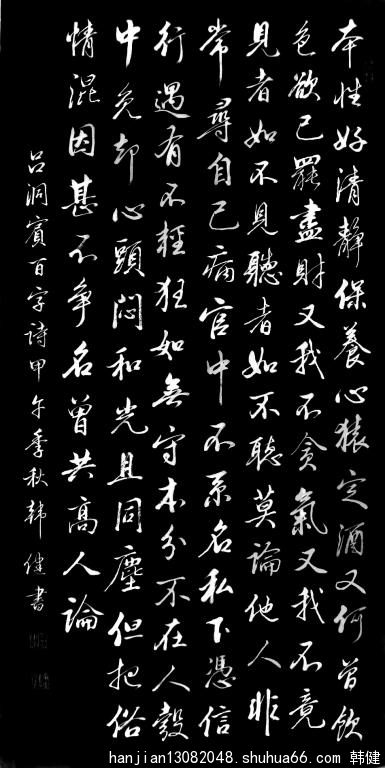 本性好清靜保養心猿定酒又何曾飲
色欲已罷盡財又我不貪氣又我不竟
見者如不見聽者如不聽莫論他人非
常尋自己病官中不系名私下憑信
行遇有不輕狂如無守本分不在人彀
中免却心頭悶和光且同塵但把俗
情混因甚不争名曾共高人論
吕洞賓百字詩甲午季秋韓健書
hanjian13082048.shuhua66.com 韩健